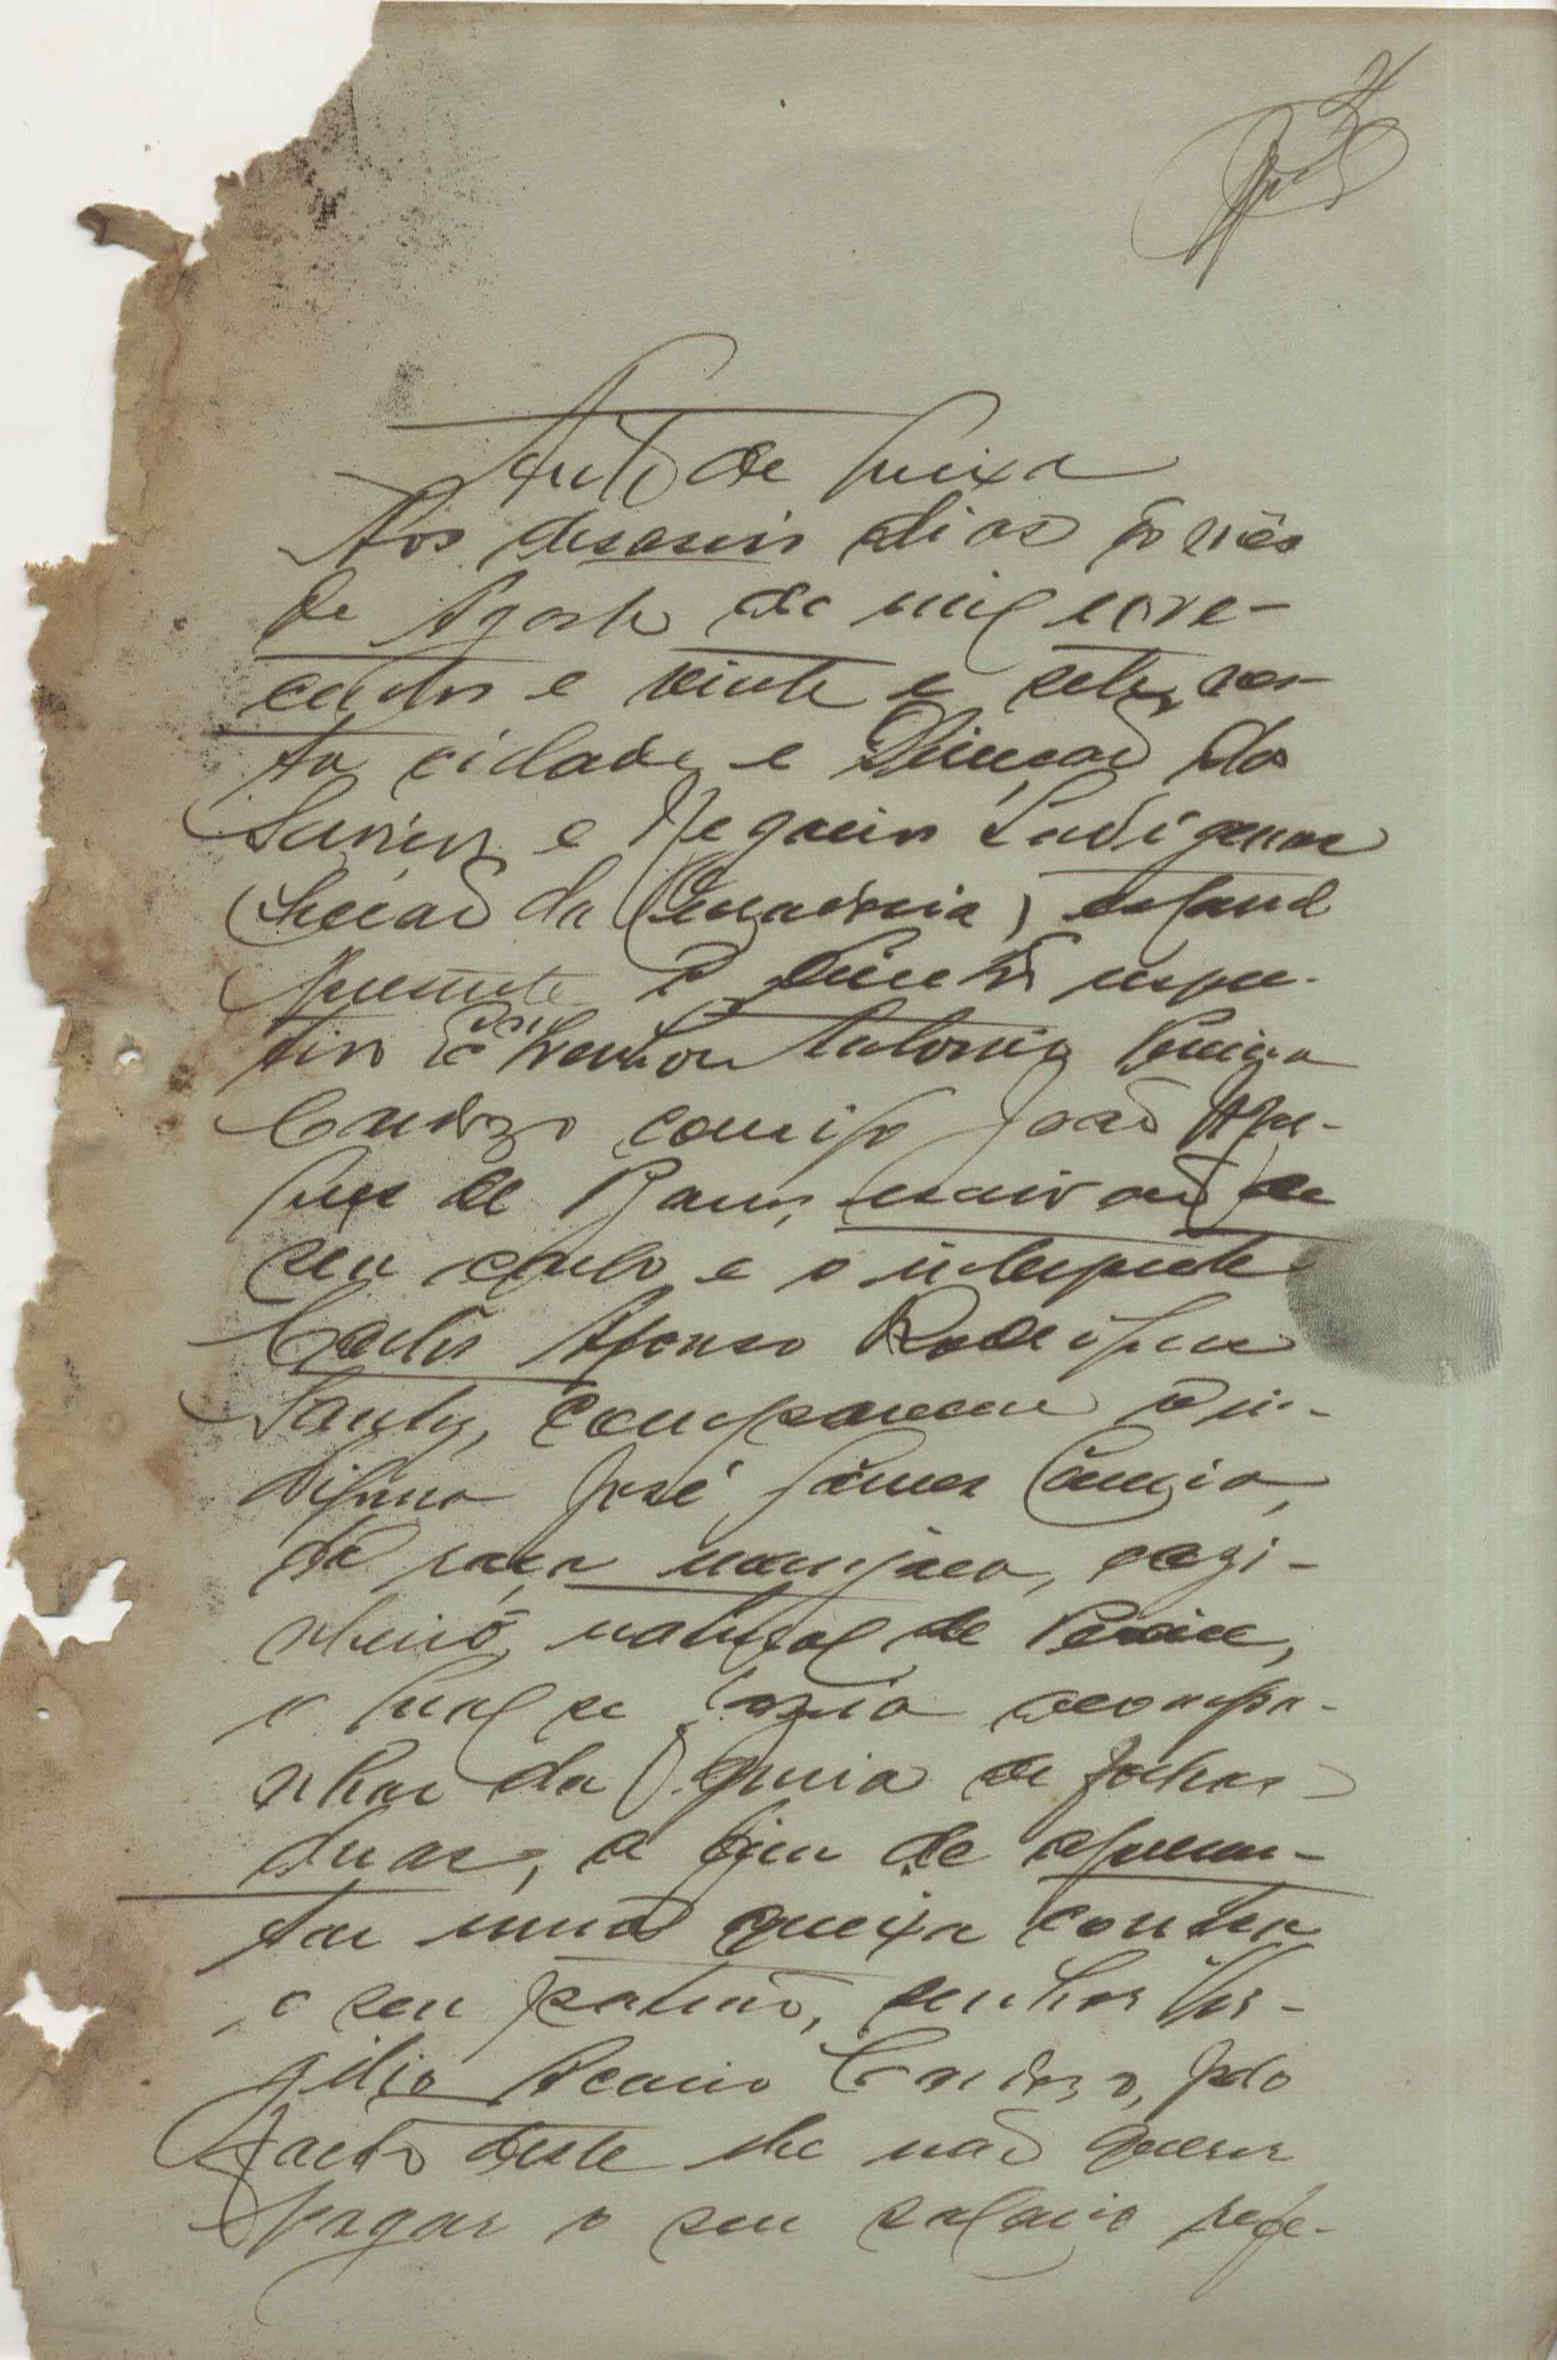 Auto de queixa
Aos desaseis dias do mês
de Agosto de mil nove-
centos e vinte e sete, nes-
ta cidade e Direcção dos
Serviços e Negocios Indigenas
(Secção da Curadoria), estand
presente o Director
Senhor Antonio Pereira
Cardozo comigo João
de Barros, escrivão de
seu cargo e o interprete
Carlos Afonso Rodrigues
Santos, compareceu o in-
digena José Gomes Correia,
de raça manjaca, cozi-
nheiro, natural de Pecixe,
o qual se fazia acompa-
nhar da guia de folhas
duas, a fim de apresen-
tar uma queixa contra
o seu patrão, senhor Vir-
gilio Acacio Cardozo, pelo
facto deste lhe não querer
pagar o seu salario refe-